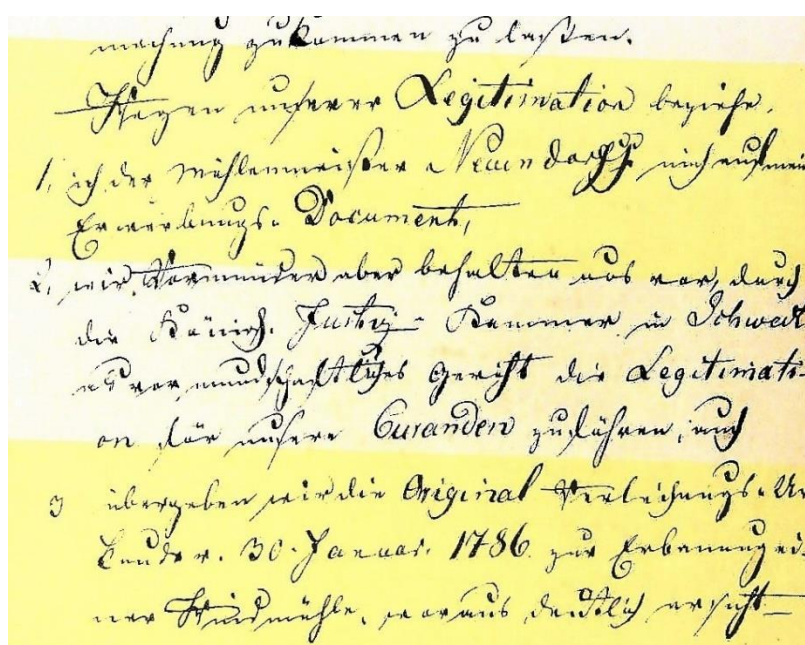 machung zukommen zu lassen.
Wegen unserer Legitimation beziehe,
1, ich der Mühlenmeister Neuendorff mich auf mein
Erwerbungs-Document,
2, wir Vormünder aber behalten uns vor, durch
die Königl. Justiz-Kammer in Schwedt
als vormundschaftliches Gericht die Legitimati-
on für unsere Curanden zu führen, auch
3 übergeben wir die Original Verleihungs-Ur
kunde v. 30. Januar. 1786 zur Erbauung ei-
ner Windmühle, woraus deutlich ersicht-